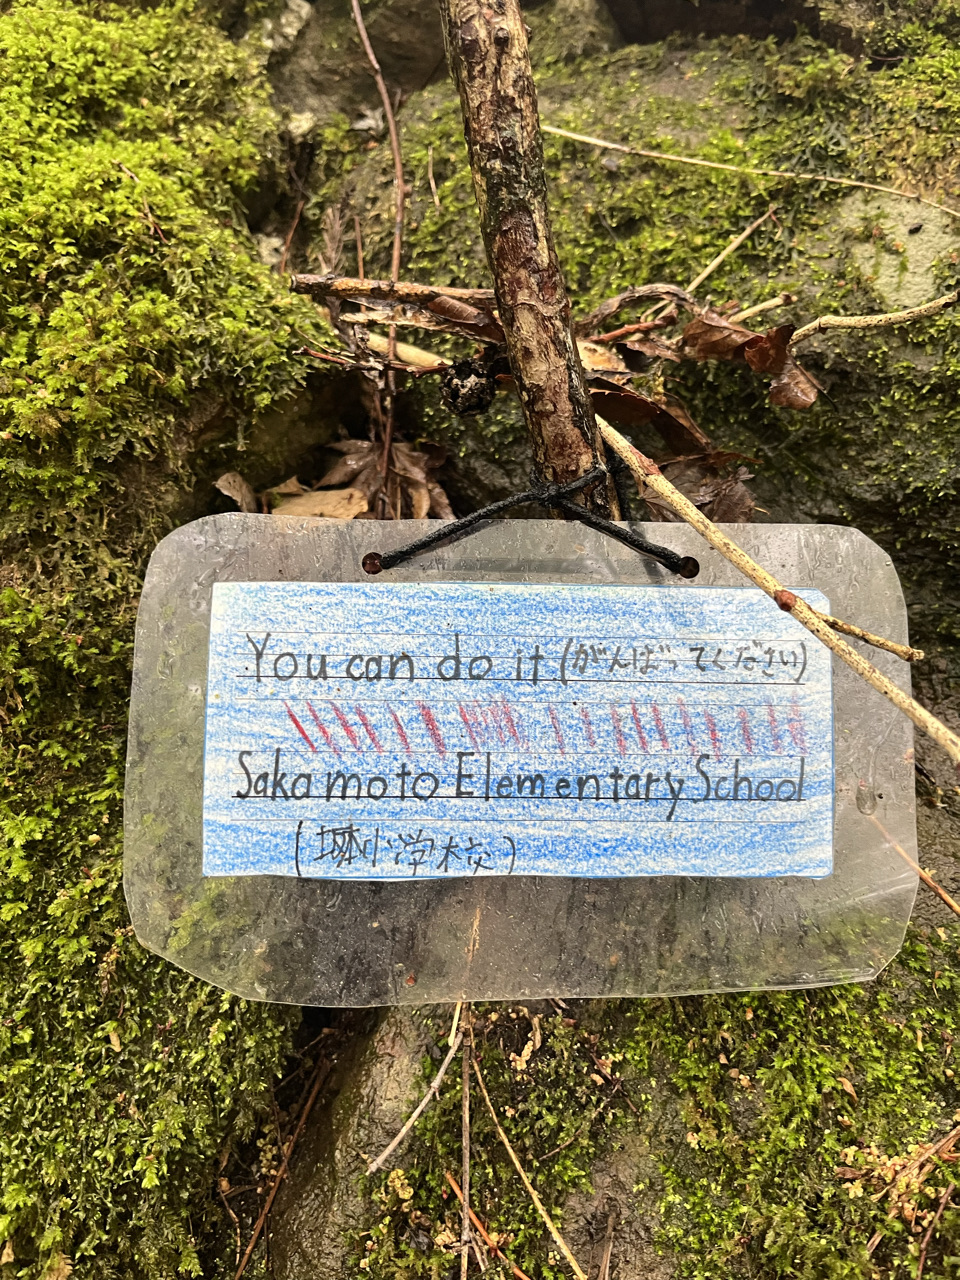 You can do it (がんばってください)
Sakamoto Elementary School
(坂本小学校)